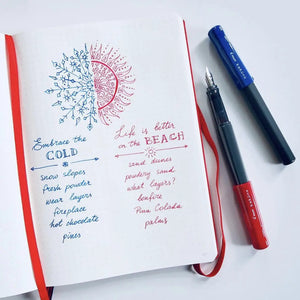 Embrace the
COLD
snow slopes
fresh powder
wear layers
fireplace
hot chocolate
pines
Life is better
on the BEACH
sand dunes
powdery sand
what layers?
bonfire
Pina Colada
palms